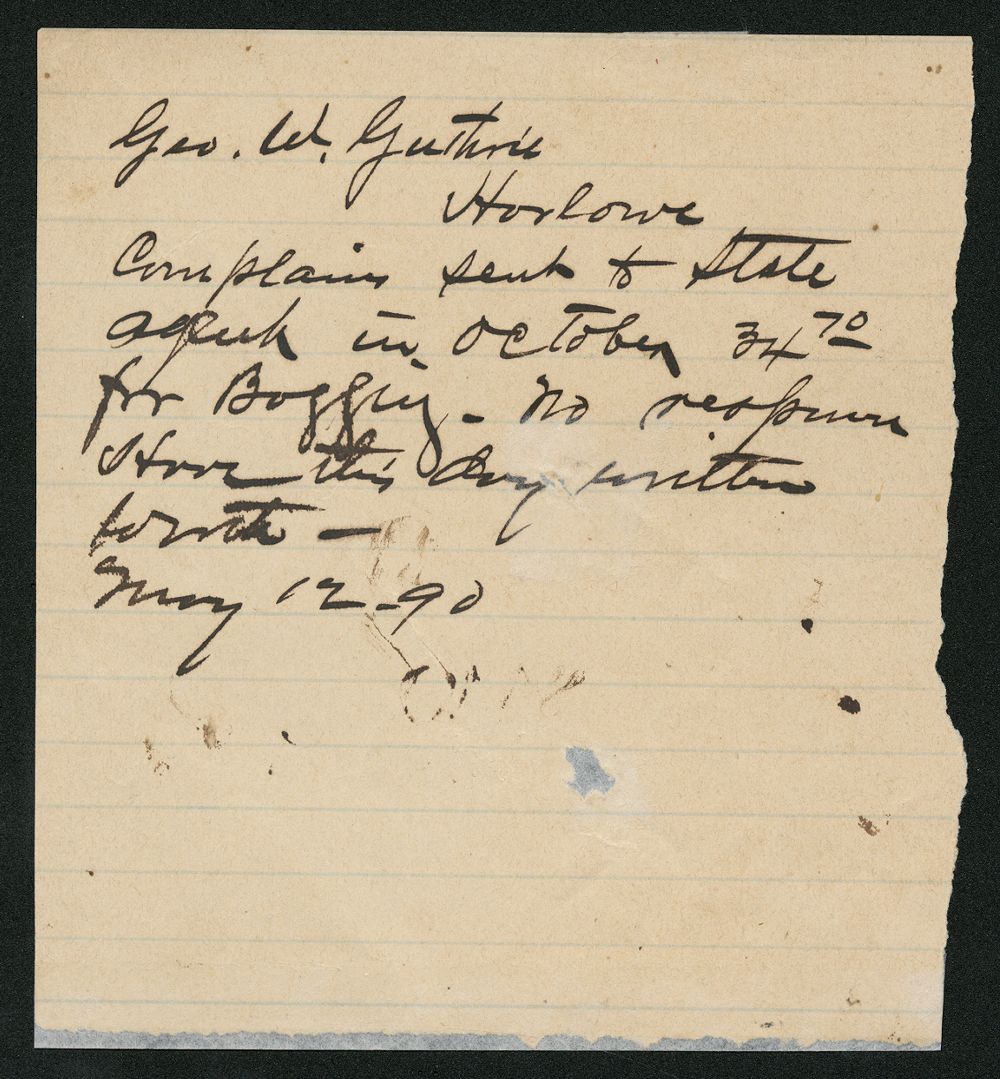 Geo. W. Guthrie
Harlowe
Complains sent to State
agent in October 34 70
for Bagging - No response
Have this day written
Worth —
May 12 - 90